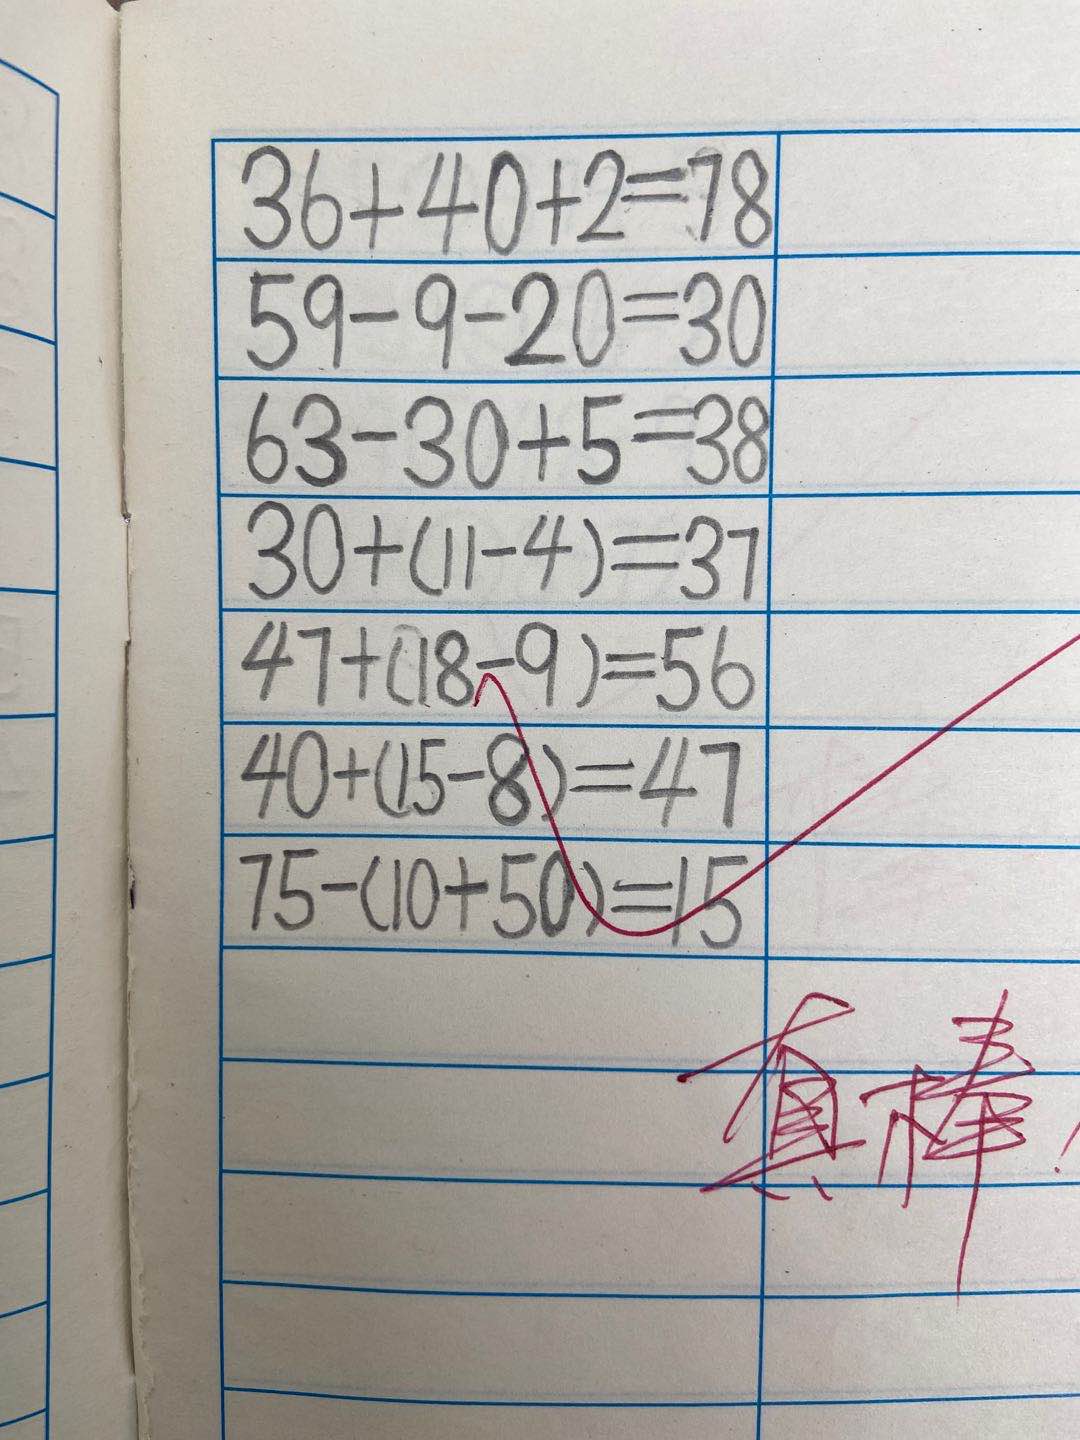 36+40+2=78
59-9-20=30
63-30+5=38
30+(11-4)=37
47+(18-9)=56
40+(15-8)=47
75-(10+50)=15
真棒!